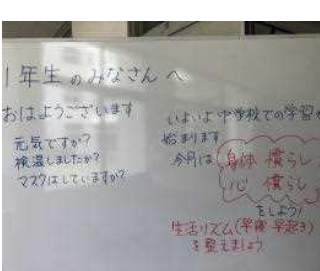 1年生のみなさんへ
おはようございます
元気ですか?
検温しましたか?
マスクはしていますか?
いよいよ中学校での学習が
始まります
今月は 身体 慣らし
心 慣らし
をしよう!
生活リズム(早寝・早起き)
を整えましょう